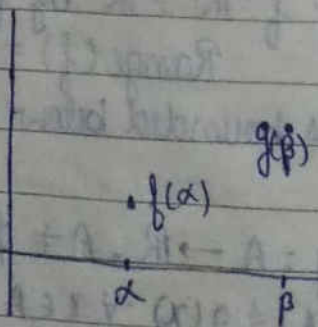 g(β)
f(α)
α
β